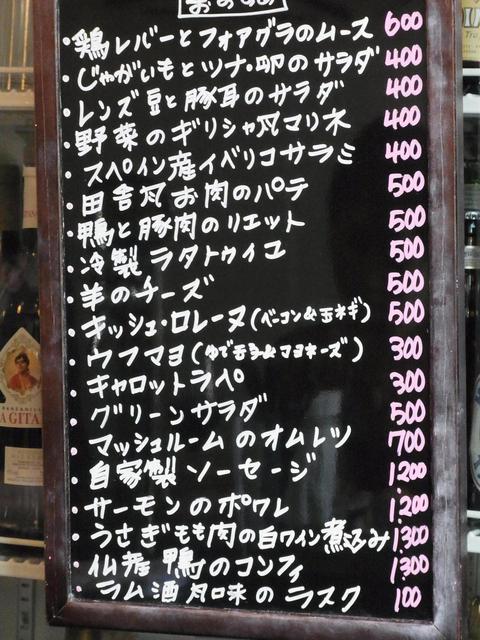 おすすめ
・鶏レバーとフォアグラのムース 600
・じゃがいもとツナ・卵のサラダ 400
・レンズ豆と豚耳のサラダ 400
・野菜のギリシャ风マリネ 400
・スペイン産イベリコサラミ 400
・田舎风お肉のパテ 500
・鴨と豚肉のリエット 500
・冷製ラタトゥイユ 500
・羊のチーズ 500
・キッシュ・ロレーヌ(ベーコン&玉ネギ) 500
・ウフマヨ(ゆで玉子&マヨネーズ) 300
・キャロットラペ 300
・グリーンサラダ 500
・マッシュルームのオムレツ 700
・自家製ソーセージ 1200
・サーモンのポワレ 1200
・うさぎもも肉の白ワイン煮込み 1300
・仏産鴨のコンフィ 1300
・ラム酒风味のラスク 100